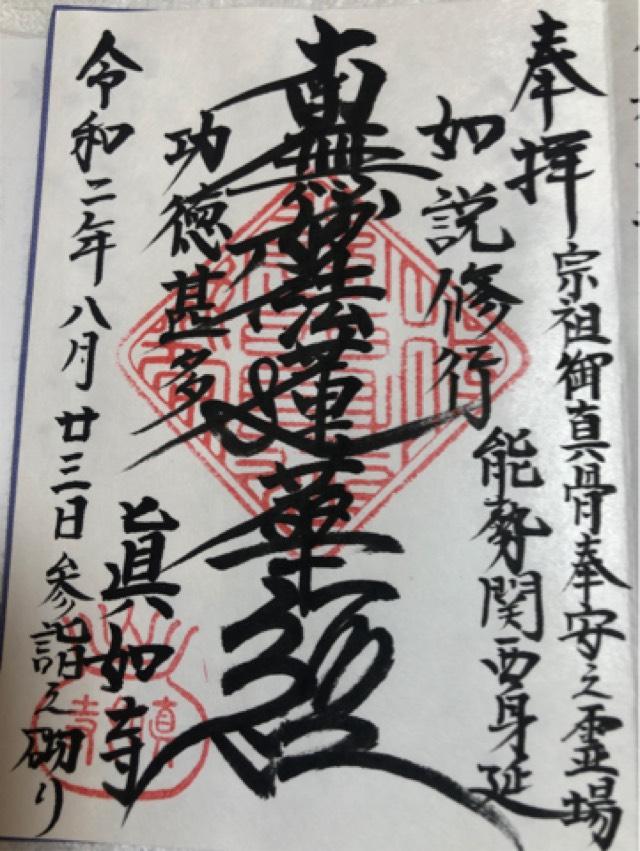 奉拝
宗祖御真骨奉安之霊場
能勢関西身延
如説修行
南無妙法蓮華経
功徳甚多
眞如寺
令和二年八月廿三日参詣之砌り